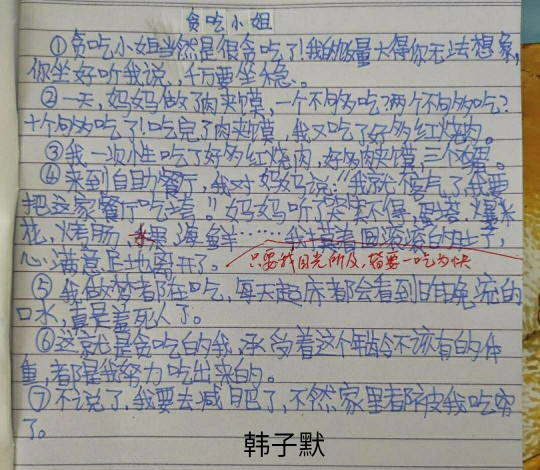 贪吃小姐
①贪吃小姐当然是很贪吃了!我的饭量大得你无法想象,
你坐好听我说,千万要坐稳。
②一天,妈妈做了肉夹馍,一个不够多吃?两个不够多吃?
十个够多吃了!吃完了肉夹馍,我又吃了好多红烧肉。
③我一次性吃了好多红烧肉,好多肉夹馍,三个
④来到自助餐厅,我对妈妈说:“我就不客气了,我要
把这家餐厅吃垮。”妈妈听了哭笑不得,蛋塔,爆米
花,烤肠,水果,海鲜……我挺着圆滚滚的肚子,
心满意足地离开了。
只要我目光所及,皆要一吃为快
⑤我做梦都在吃,每天起床都会看到的
口水,真是羞死人了。
⑥这就是贪吃的我,承受着这个年龄不该有的体
重,都是我努力吃出来的。
⑦不说了,我要去减肥了,不然家里都被我吃穷
了。
韩子默